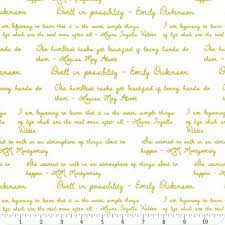 Dwell in possibility - Emily Dickinson
I am beginning to learn that it is the sweet, simple things
of life which are the real ones after all - Laura Ingalls
Wilder
The humblest tasks get beautified if loving hands do
them - Louisa May Alcott
Dwell in possibility - Emily Dickinson
The humblest tasks get beautified if loving hands do
them - Louisa May Alcott
I am beginning to learn that it is the sweet, simple things
of life which are the real ones after all - Laura Ingalls
Wilder
She seemed to walk in an atmosphere of things about to
happen - LM Montgomery
Dwell in possibility - Emily Dickinson
I am beginning to learn that it is the sweet, simple things
of life which are the real ones after all - Laura Ingalls
Wilder
She seemed to walk in an atmosphere of things about to
happen - LM Montgomery
1 2 3 4 5 6 7 8 9 10